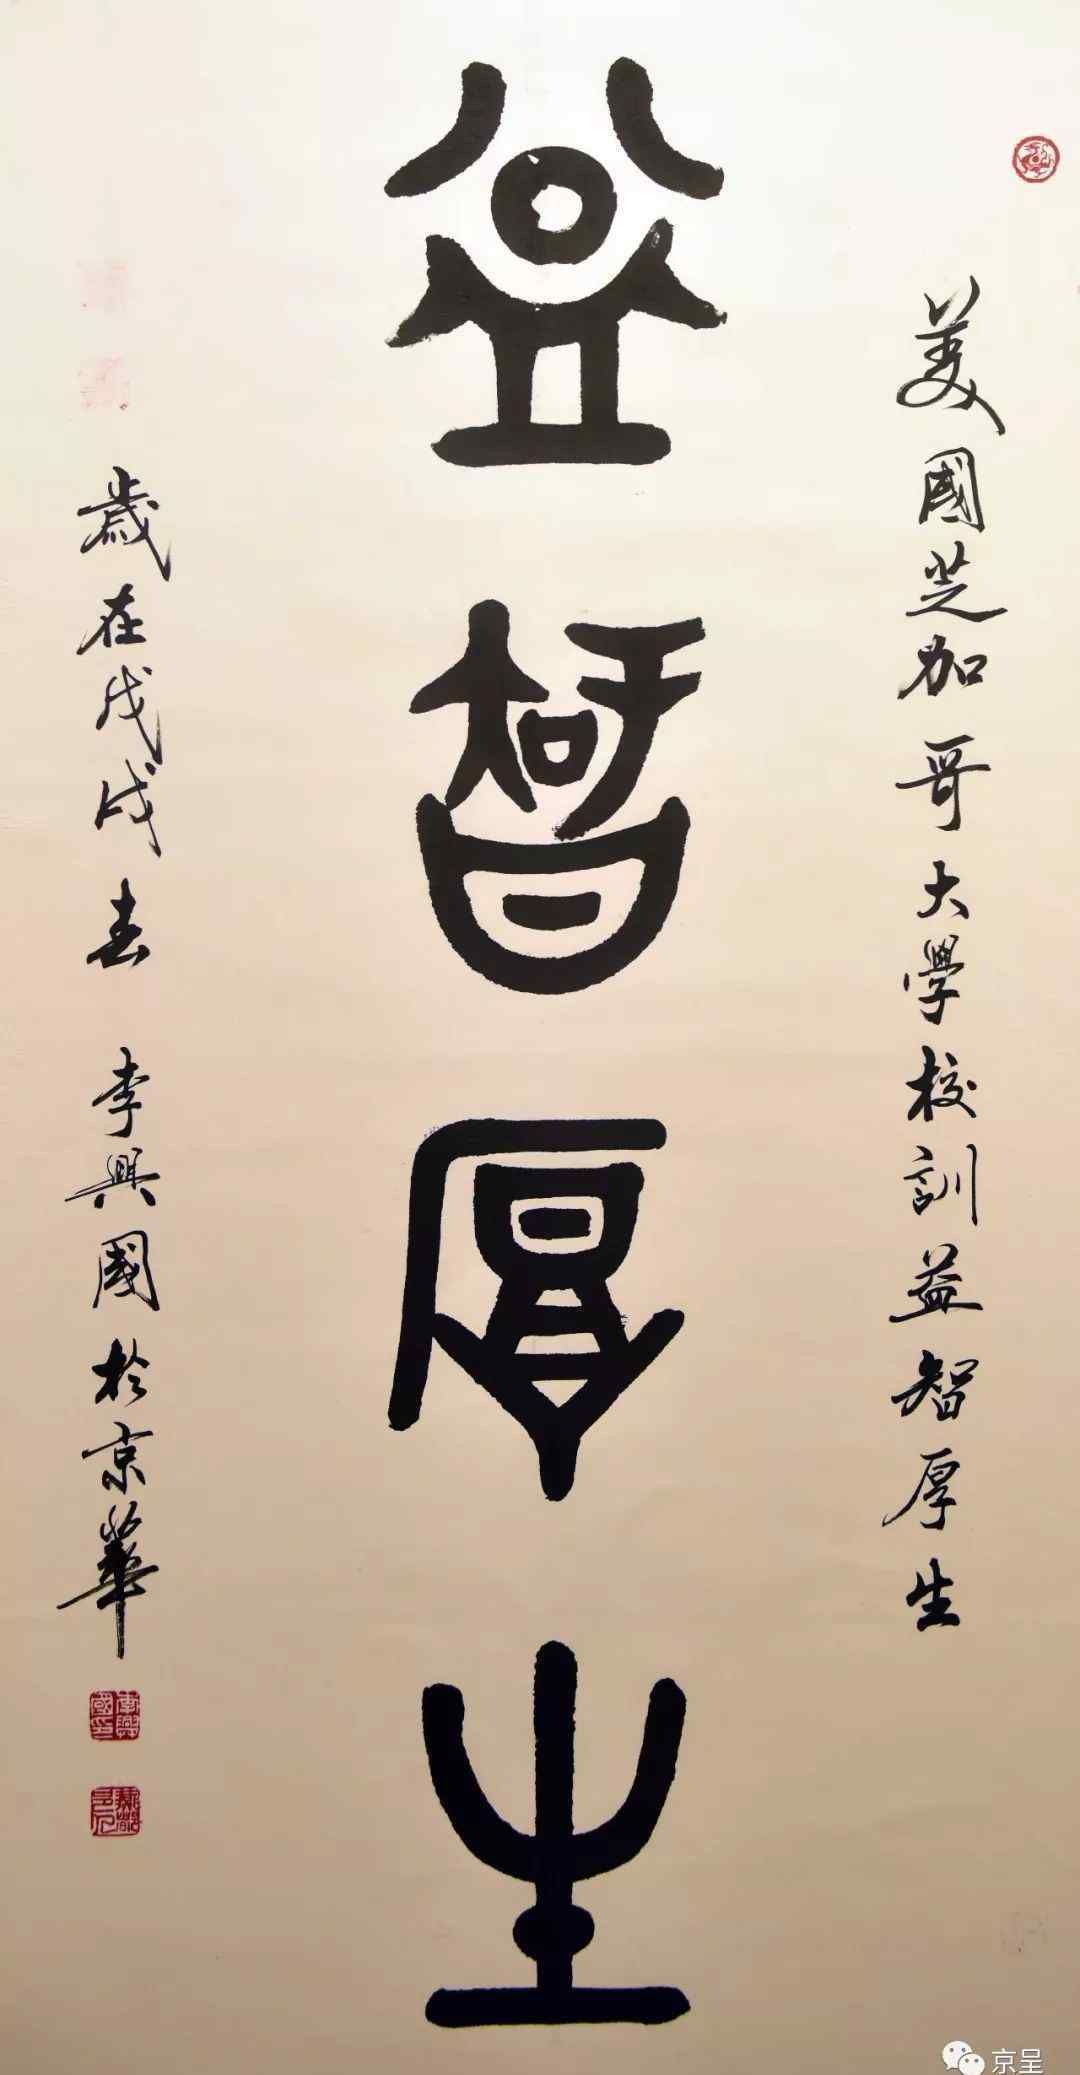 美國芝加哥大學校訓益智厚生
益智厚生
歲在戊戌春 李興國於京華
李興國印
京呈